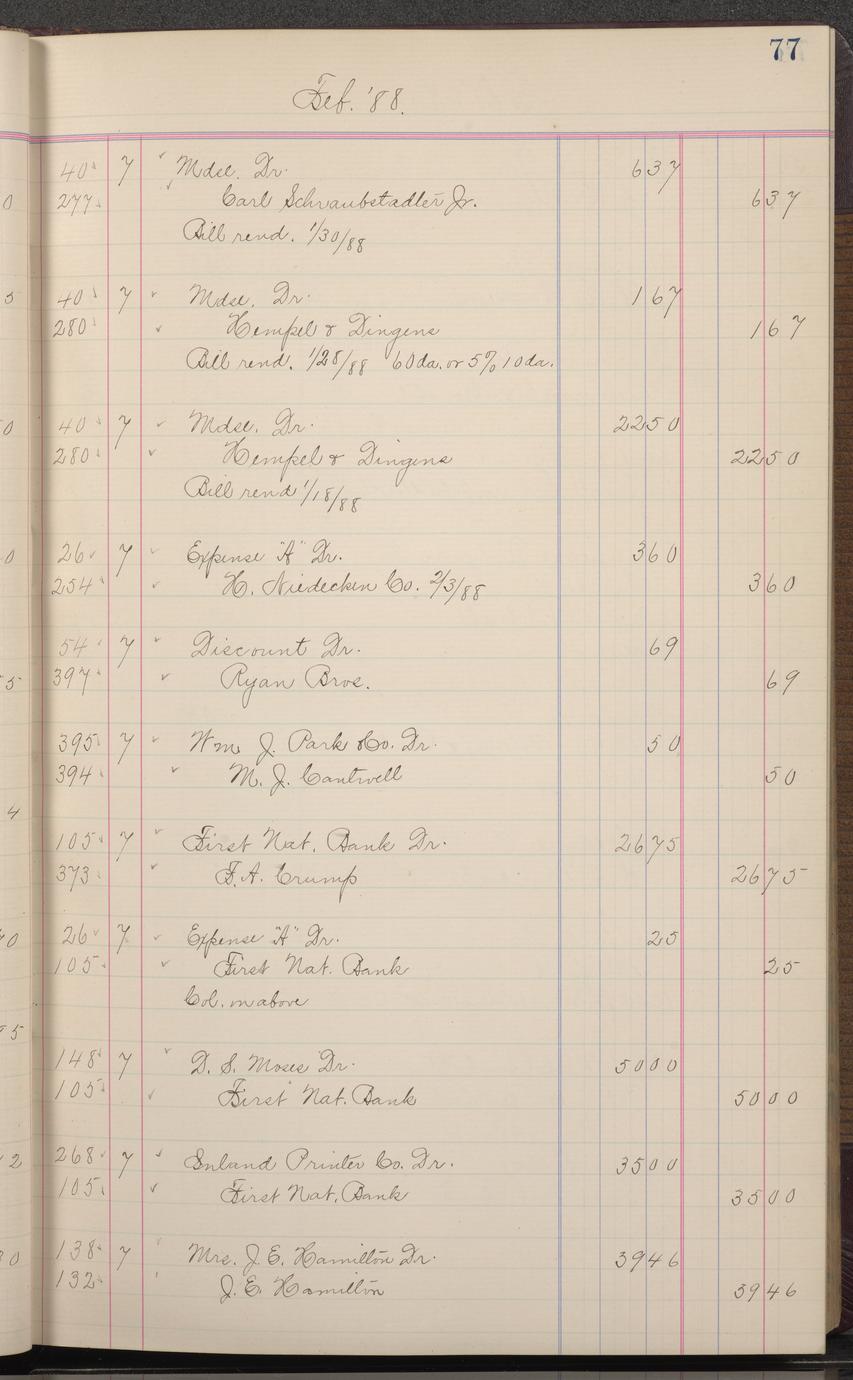 77
Feb. '88.
40 7 Mdse. Dr. 637
277 Carl Schraubstadter Jr. 637
Bill rend. 1/30/88
40 7 Mdse. Dr. 167
280 Hempel & Dingens 167
Bill rend. 1/28/88 60 da. or 5% 10 da.
40 7 Mdse. Dr. 2250
280 Hempel & Dingens 2250
Bill rend 1/18/88
26 7 Expense "A" Dr. 360
254 H. Niedecken Co. 2/3/88 360
54 7 Discount Dr. 69
397 Ryan Bros. 69
395 7 Wm J. Park & Co. Dr. 50
394 M. J. Cantwell 50
105 7 First Nat. Bank Dr. 2675
373 F. A. Crump 2675
26 7 Expense "A" Dr. 25
105 First Nat. Bank 25
Col. on above
148 7 D. S. Moses Dr. 5000
105 First Nat. Bank 5000
268 7 Inland Printer Co. Dr. 3500
105 First Nat. Bank 3500
138 7 Mrs. J. E. Hamilton Dr. 3946
132 J. E. Hamilton 3946